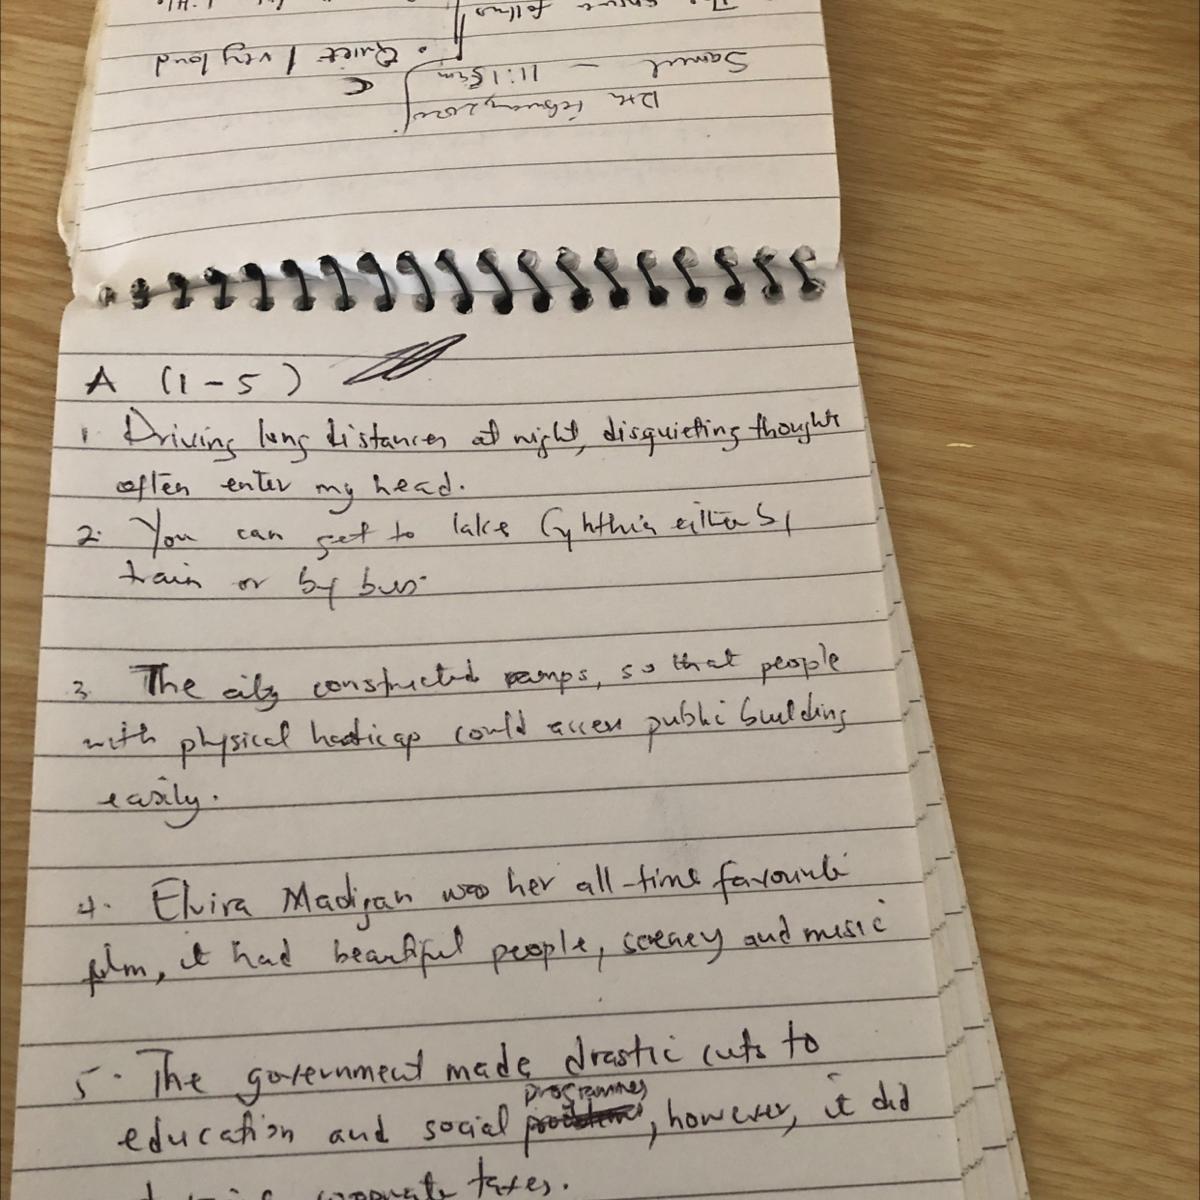 The
follows
Samuel - 11:15am
• Quiet / very loud
12th February 2020
C
A (1-5)
1. Driving long distances at night, disquieting thoughts
often enter my head.
2. You can get to lake Cynthia either by
train or by bus.
3. The city constructed ramps, so that people
with physical hadicap could access public building
easily.
4. Elvira Madigan was her all-time favourite
film, it had beautiful people, scenery and music
5. The government made drastic cuts to
programmes
education and social , however, it did
corporate taxes.